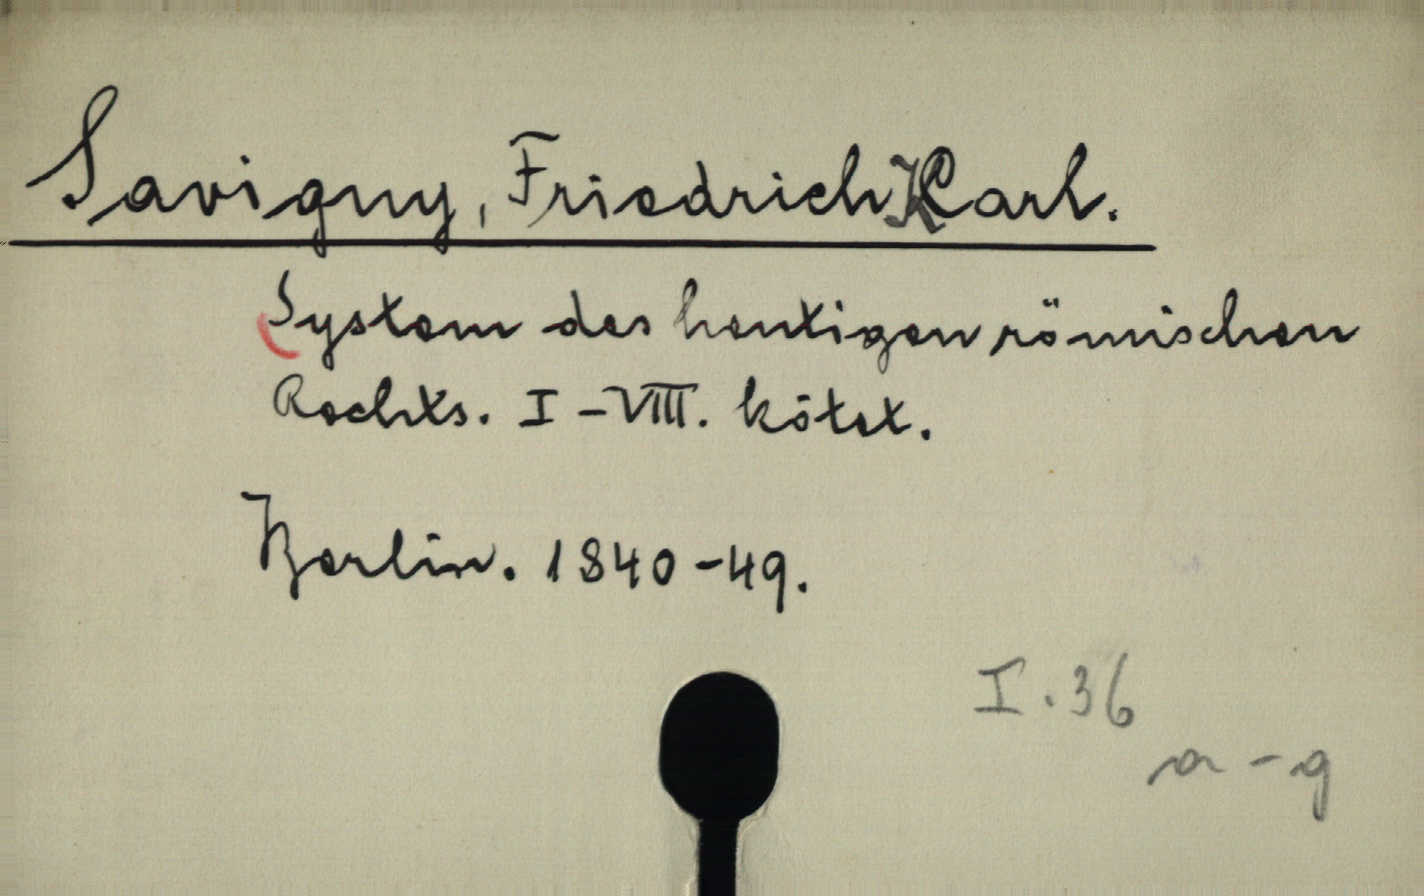 Savigny, Friedrich Karl.
System des heutigen römischen
Rechts. I-VIII. kötet.
Berlin. 1840-49.
I.36
a-g